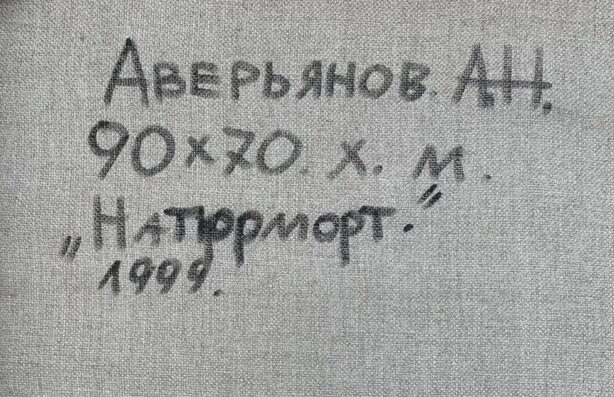 Аверьянов. А.Н.
90х70. х. м.
„Натюрморт."
1999.